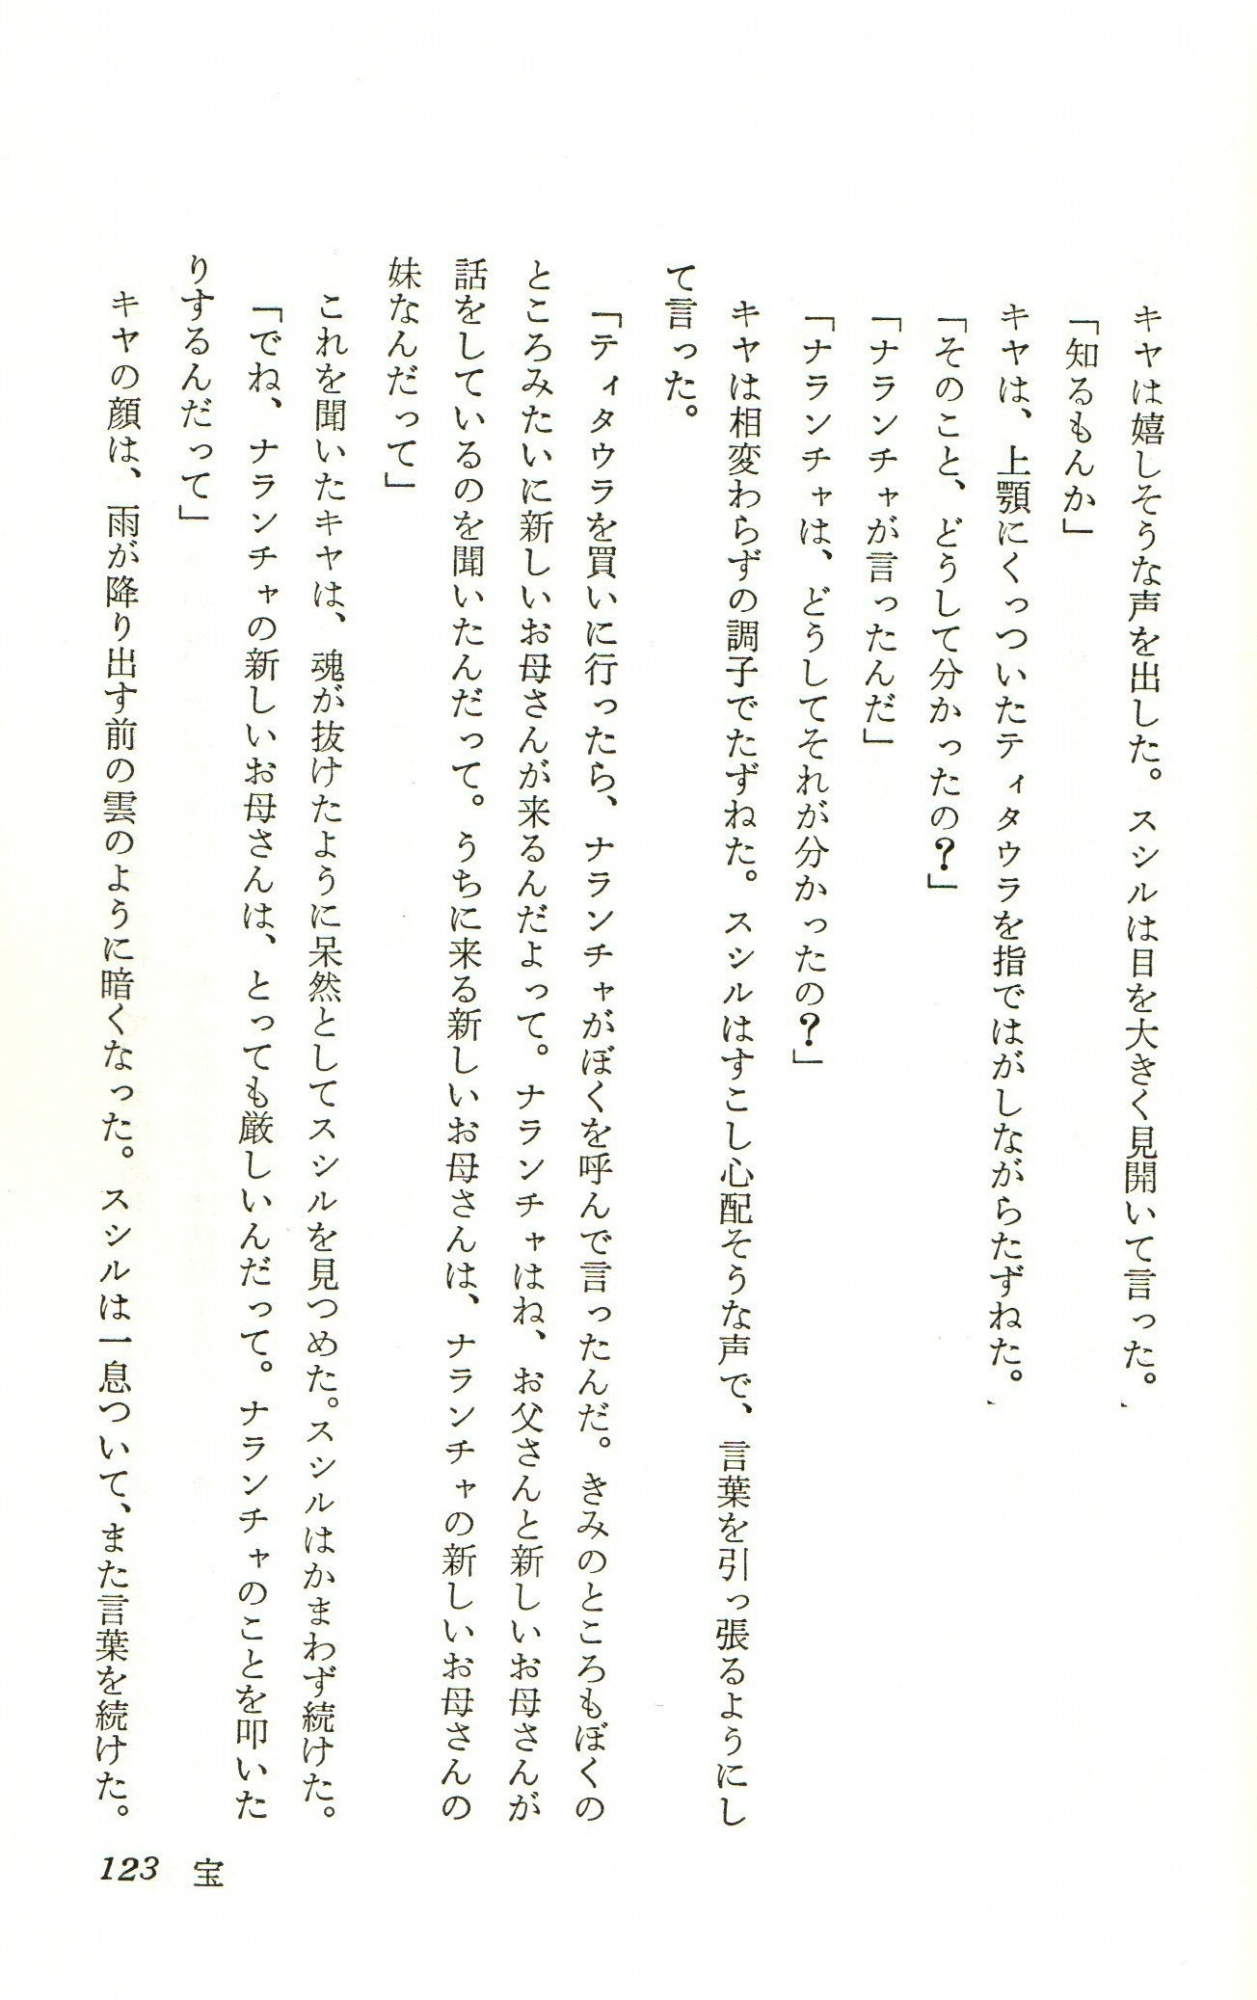 キヤは嬉しそうな声を出した。スシルは目を大きく見開いて言った。
「知るもんか」
キヤは、上顎にくっついたティタウラを指ではがしながらたずねた。
「そのこと、どうして分かったの？」
「ナランチャが言ったんだ」
「ナランチャは、どうしてそれが分かったの？」
キヤは相変わらずの調子でたずねた。スシルはすこし心配そうな声で、言葉を引っ張るようにし
て言った。
「ティタウラを買いに行ったら、ナランチャがぼくを呼んで言ったんだ。きみのところもぼくの
ところみたいに新しいお母さんが来るんだよって。ナランチャはね、お父さんと新しいお母さんが
話をしているのを聞いたんだって。うちに来る新しいお母さんは、ナランチャの新しいお母さんの
妹なんだって」
これを聞いたキヤは、魂が抜けたように呆然としてスシルを見つめた。スシルはかまわず続けた。
「でね、ナランチャの新しいお母さんは、とっても厳しいんだって。ナランチャのことを叩いた
りするんだって」
キヤの顔は、雨が降り出す前の雲のように暗くなった。スシルは一息ついて、また言葉を続けた。
123 宝